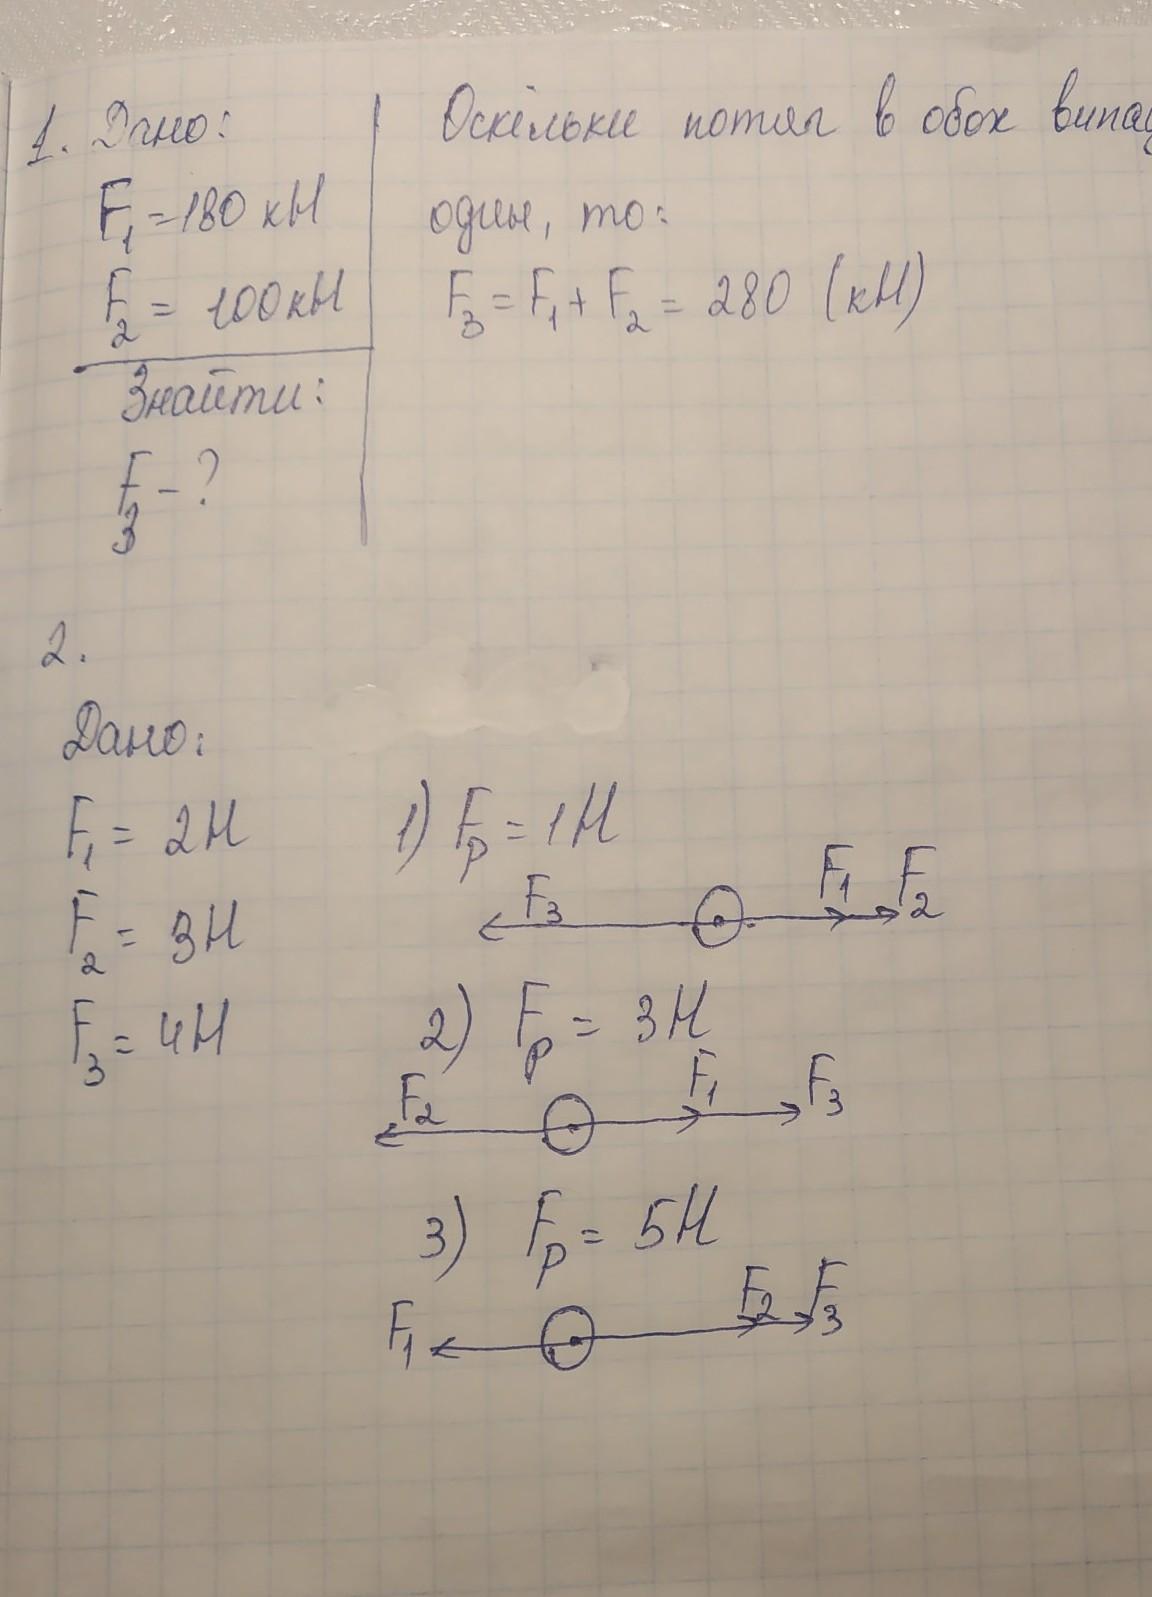 1. Дано:
F₁ = 180 кН
F₂ = 100 кН
Знайти:
F₃ - ?
Оскільки потяг в обох
один, то:
F₃ = F₁ + F₂ = 280 (кН)
2.
Дано:
F₁ = 2Н
F₂ = 3Н
F₃ = 4Н
1) Fр = 1Н
F₃ F₁ F₂
2) Fр = 3Н
F₂ F₁ F₃
3) Fр = 5Н
F₁ F₂ F₃